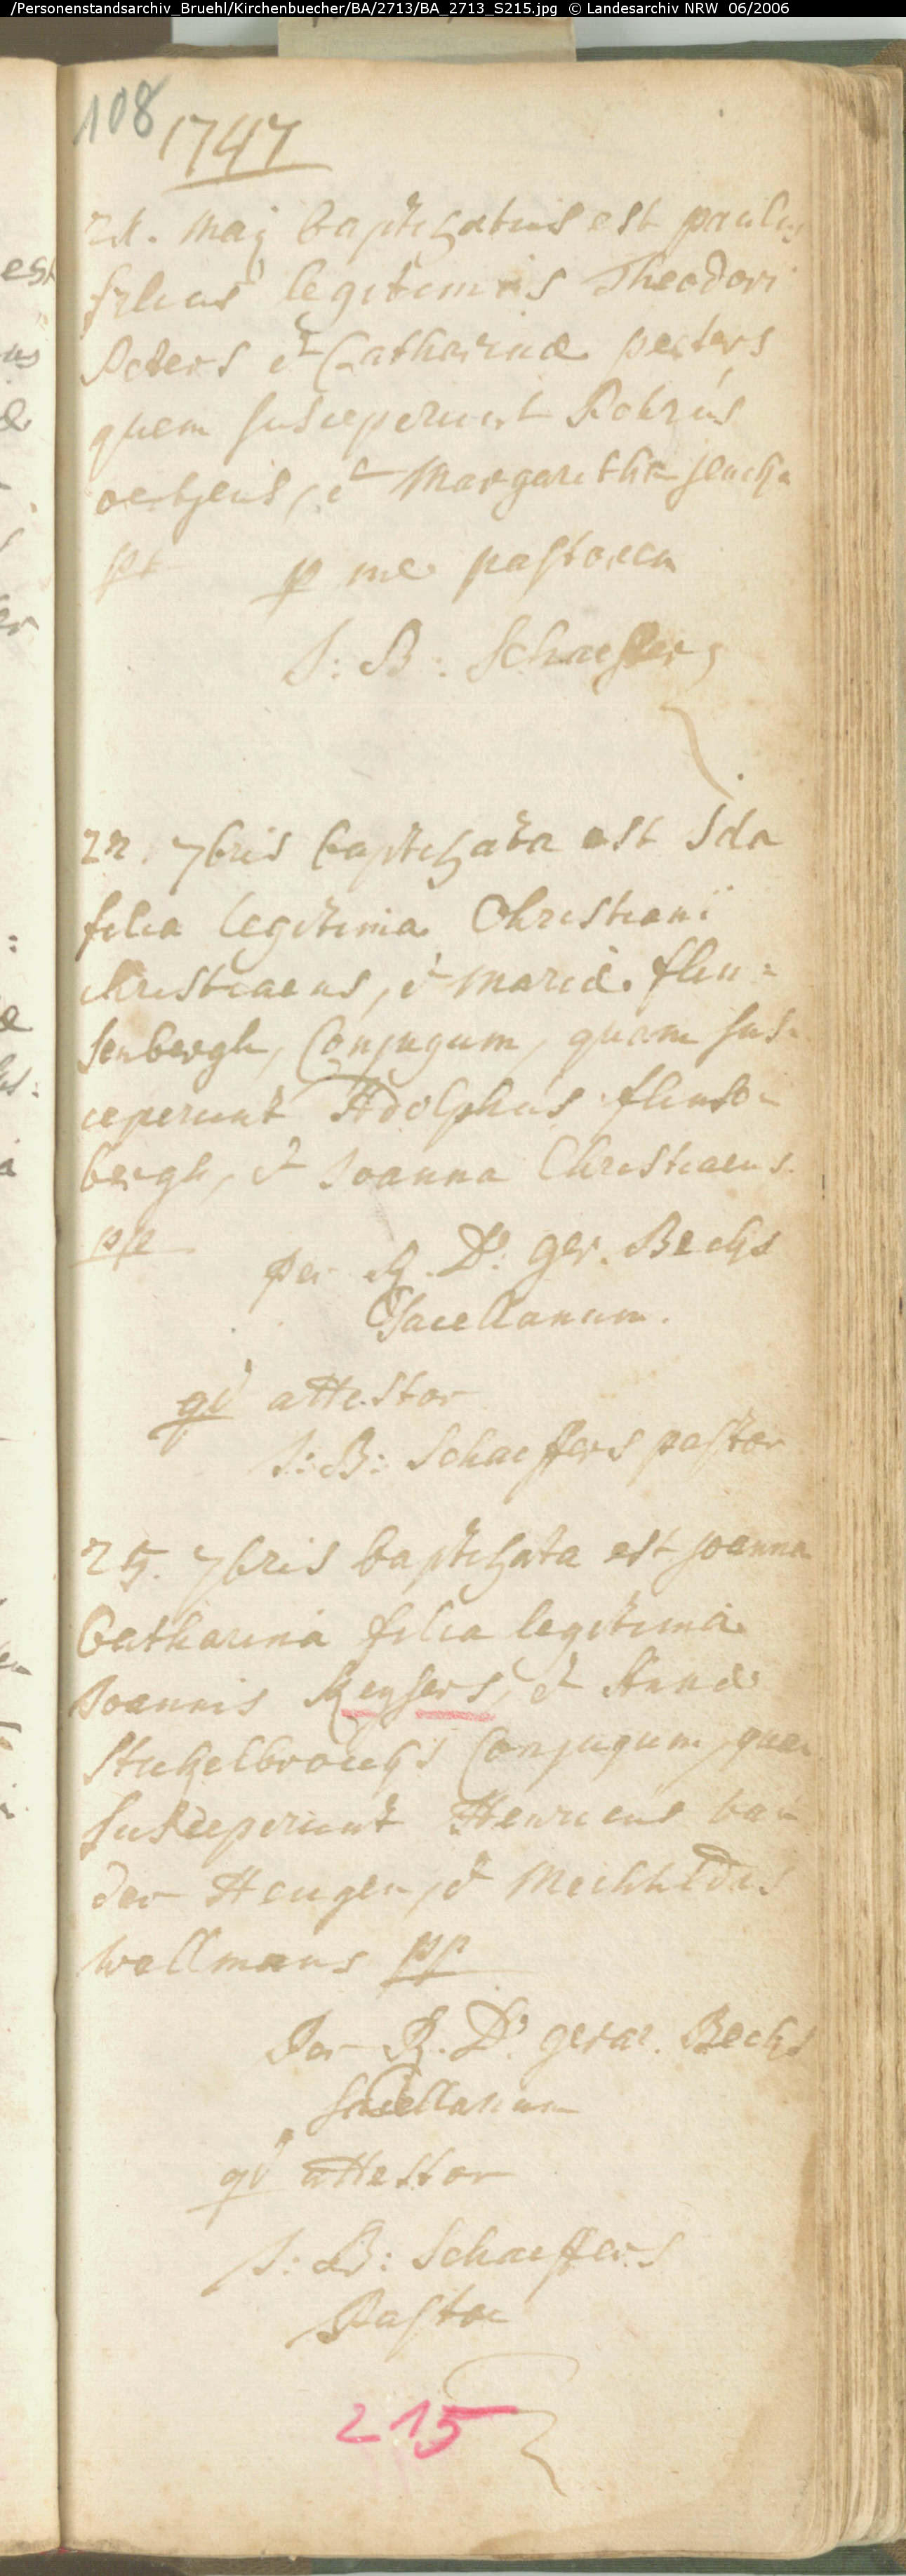 /Personenstandsarchiv_Bruehl/Kirchenbuecher/BA/2713/BA_2713_S215.jpg © Landesarchiv NRW 06/2006
108
1747
21. Maij baptizatus est paulus
filius legitimus Theodori
Peters et Catharinæ peeters
quem susceperunt
et Margaritha
p me pastorem
J: B: Schaeffers
22. 7bris baptizata est Ida
filia legitima Christiani
Christiaens, et Mariæ flin=
senbergh, Conjugum, quam sus=
ceperunt Adolphus flinsen
bergh, et Joanna Christiaens.
pp
per R. D. Ger. Becks
Sacellanum.
qd attestor
J: B: Schaeffers pastor
25. 7bris baptizata est Joanna
Catharina filia legitima
Joannis Keysers, et Annæ
Conjugum, quam
susceperunt Henricus van
der Heugen, et Mechtildas
wellmans pp
Per R. D. gerar. Becks
Sacellanum
qd attestor
J: B: Schaeffers
Pastor
215